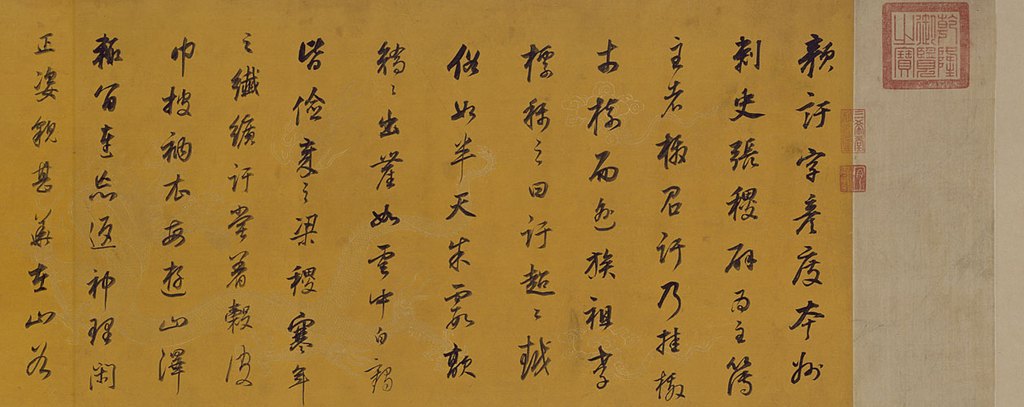 乾隆御覽之寶
三希堂精鑑璽
宜子孫
訏字彥度本州
刺史張稷辟為主簿
主者檄召訏乃挂檄
於樹而逃族祖孝
標稱之曰訏超越
俗如半天朱霞歊
矯出塵如雲中白鶴
皆儉歲之粱稷寒年
之纖纊訏嘗著穀皮
巾披衲衣每遊山澤
輒留連忘返神理閑
正姿貌甚華在山谷